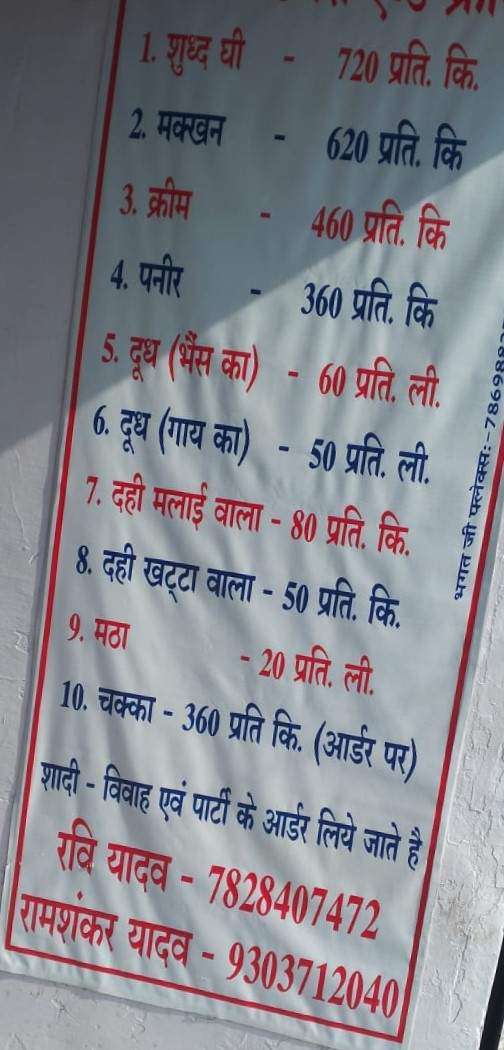 1. शुध्द घी - 720 प्रति. कि.
2. मक्खन - 620 प्रति. कि
3. क्रीम - 460 प्रति. कि
4. पनीर - 360 प्रति. कि
5. दूध (भैंस का) - 60 प्रति. ली.
6. दूध (गाय का) - 50 प्रति. ली.
7. दही मलाई वाला - 80 प्रति. कि.
8. दही खट्टा वाला - 50 प्रति. कि.
9. मठा - 20 प्रति. ली.
10. चक्का - 360 प्रति कि. (आर्डर पर)
शादी - विवाह एवं पार्टी के आर्डर लिये जाते है
रवि यादव - 7828407472
रामशंकर यादव - 9303712040
भगत जी फ्लेक्स:-